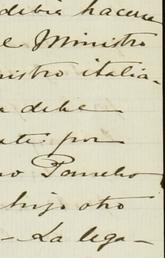 debia hacerse
el Ministro
nistro italia-
a debe
ate por
no Pancho
hijo otro
- La lega-